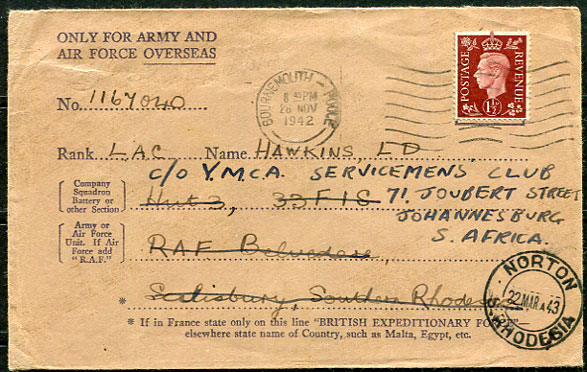 ONLY FOR ARMY AND
AIR FORCE OVERSEAS
POSTAGE REVENUE
1½D
BOURNEMOUTH - POOLE
8 45 PM
26 NOV
1942
No. 1167040
Rank LAC Name HAWKINS, LD
c/o Y.M.C.A. SERVICEMENS CLUB
Company
Squadron
Battery or
other Section
Hut 3, 33 FIS 71, JOUBERT STREET
JOHANNESBURG
S. AFRICA.
Army or
Air Force
Unit. If Air
Force add
"R.A.F."
RAF Belvedere,
* Salisbury, Southern Rhodesia
NORTON
22 MAR 43
S. RHODESIA
* If in France state only on this line "BRITISH EXPEDITIONARY
elsewhere state name of Country, such as Malta, Egypt, etc.